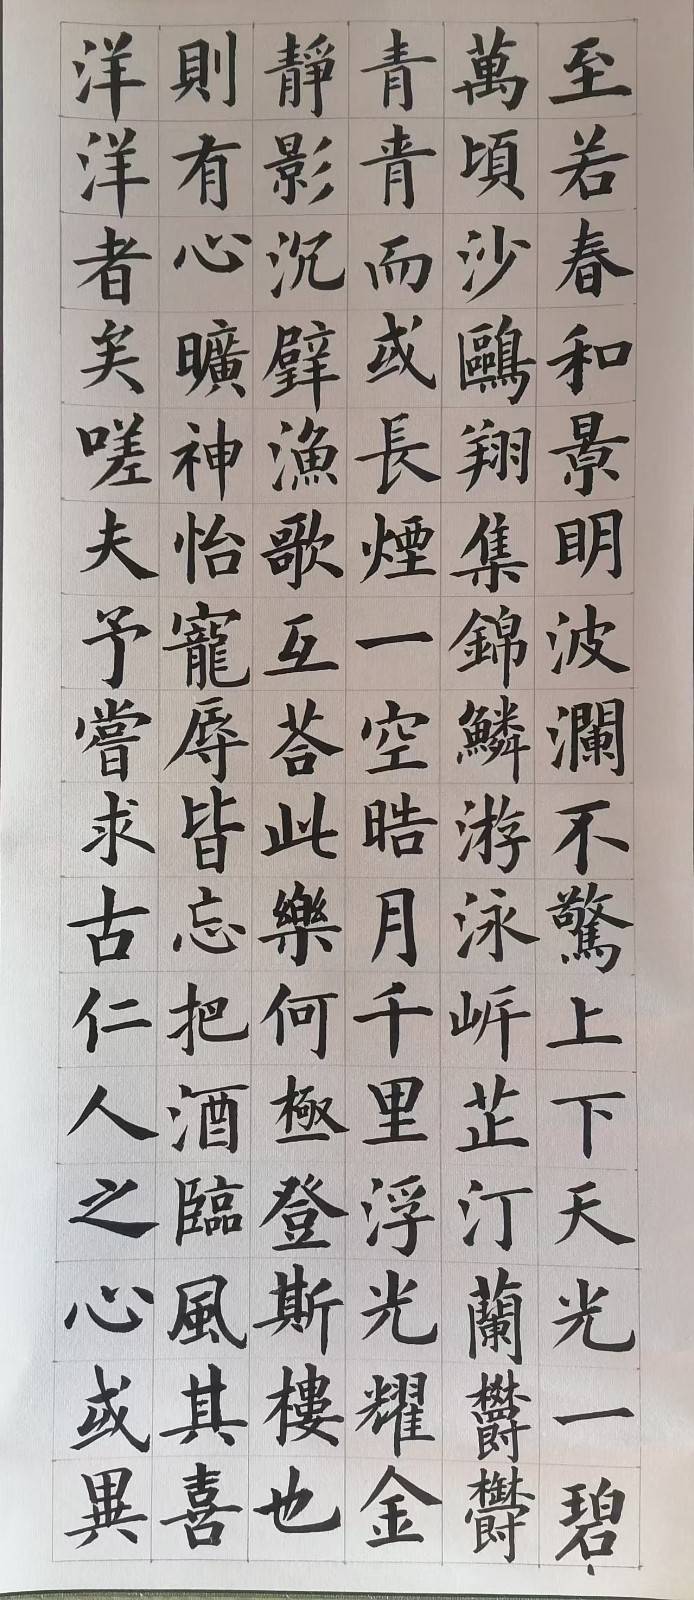 至若春和景明波瀾不驚上下天光一碧、
萬頃沙鷗翔集錦鱗游泳岸芷汀蘭鬱鬱
青青而或長煙一空晧月千里浮光耀金
靜影沉璧漁歌互荅此樂何極登斯樓也
則有心曠神怡寵辱皆忘把酒臨風其喜
洋洋者矣嗟夫予嘗求古仁人之心或異